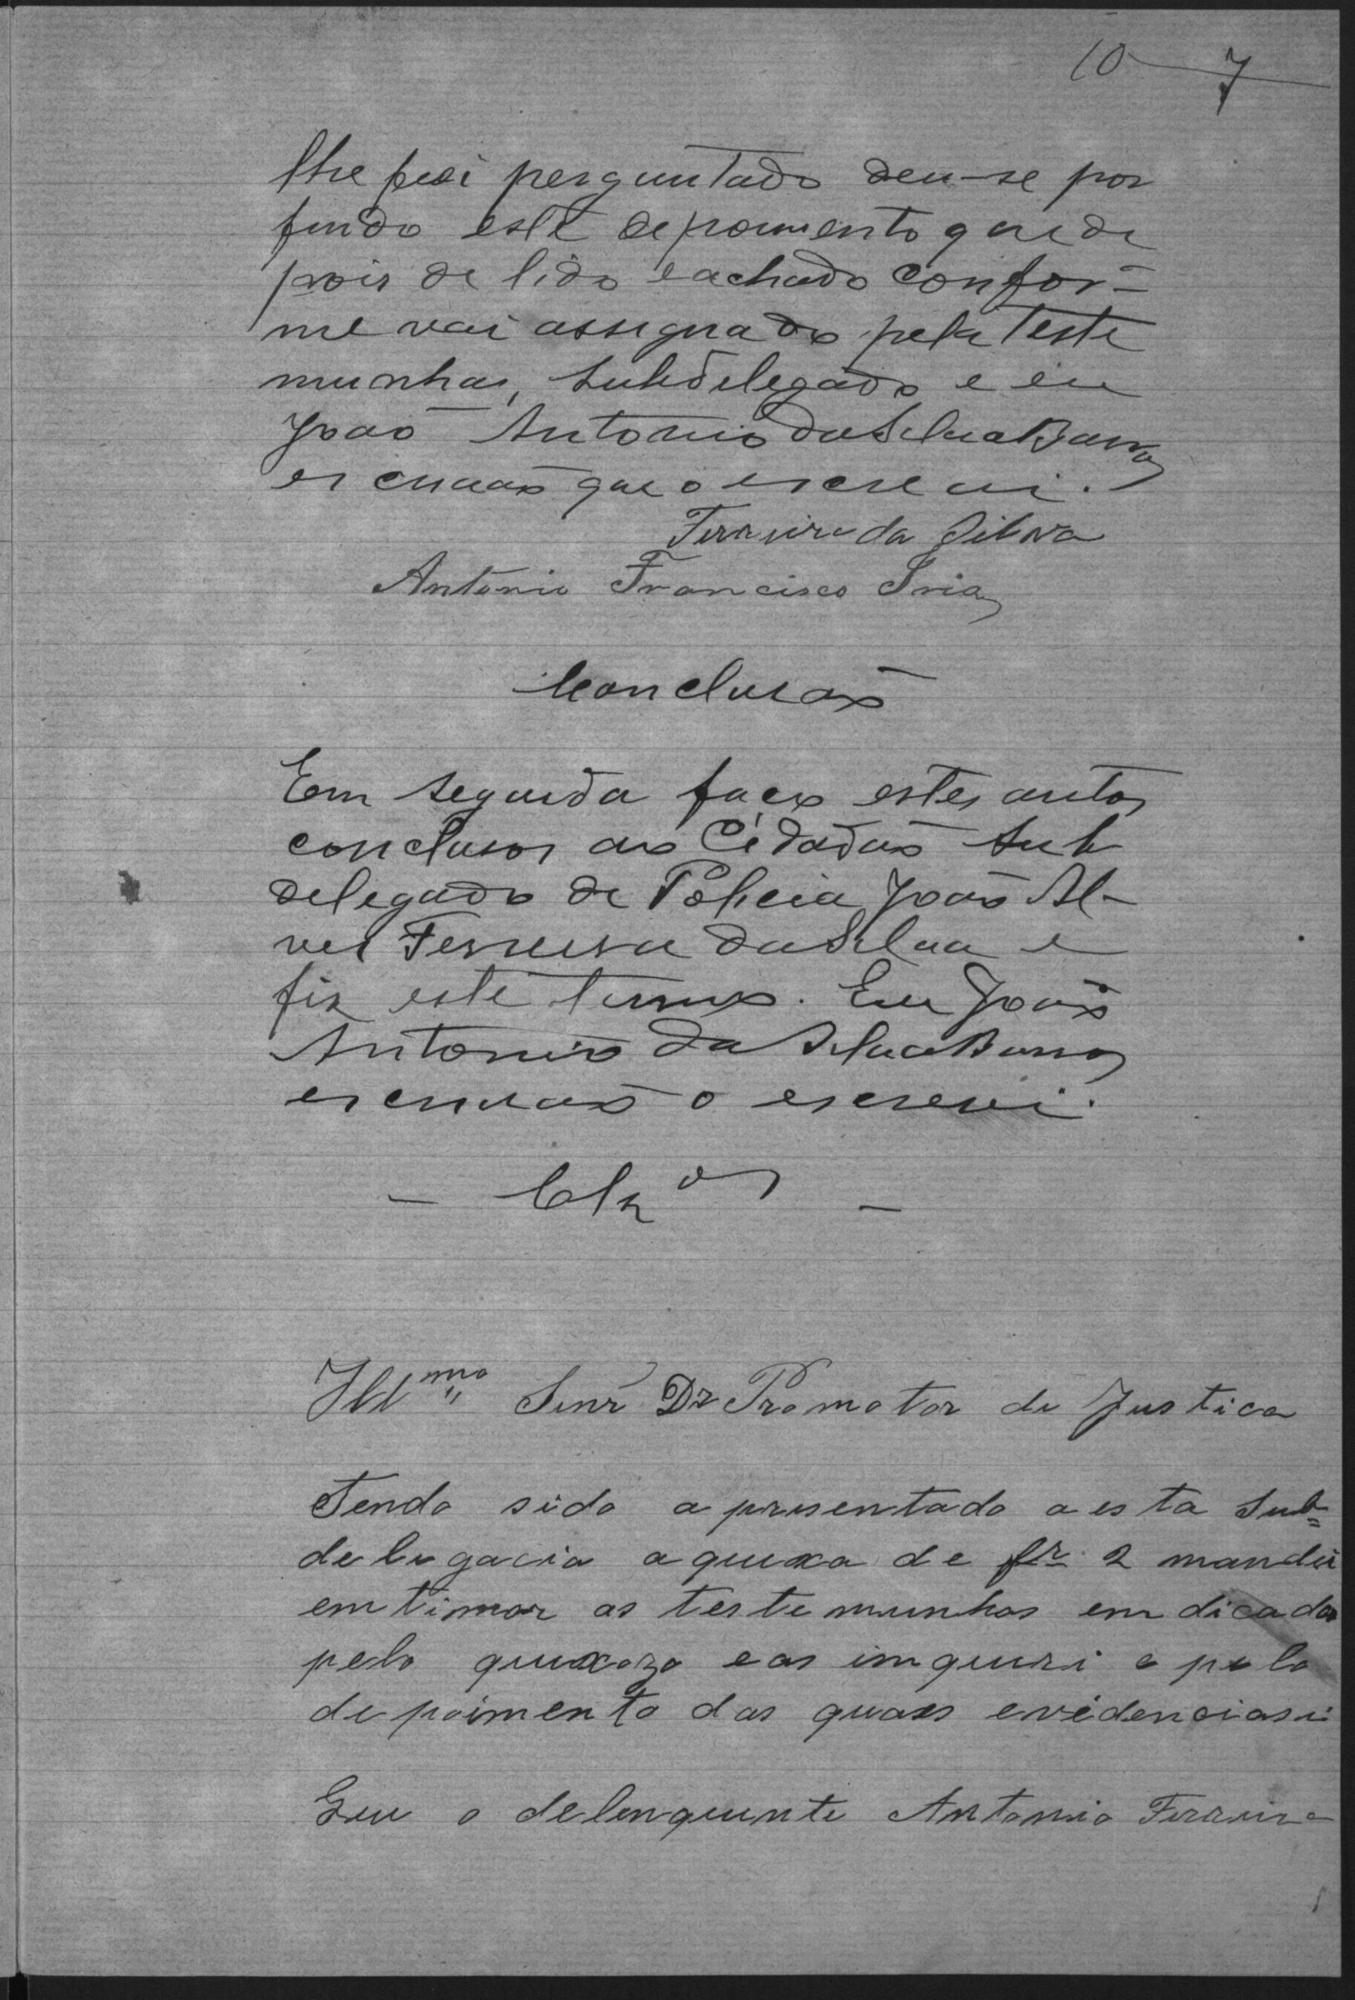 10 7
lhe foi perguntado deu-se por
findo este depoimento que de
pois de lido e achado confor=
me vai assignado pela teste
munhas, subdelegado e eu
João Antonio da Silva Barros
escrivão que o escrevi.
Ferreira da Silva
Antonio Francisco Iria
Conclusão
Em seguida faço estes autos
conclusos ao Cidadão Sub
delegado de Policia João Al-
ves Ferreira da Silva e
fiz este termo. Eu João
Antonio da Silva Barros
escrivão o escrevi.
— Clzos —
Illmo Senr Dr Promotor de Justica
Tendo sido apresentado a esta Sub=
delegacia a queixa de fr 2 mandei
emtimar as testemunhas emdicadas
pelo queixozo e as imqueri e pelo
depoimento das quaes evidenciasi
Que o delenquente Antonio Ferreira